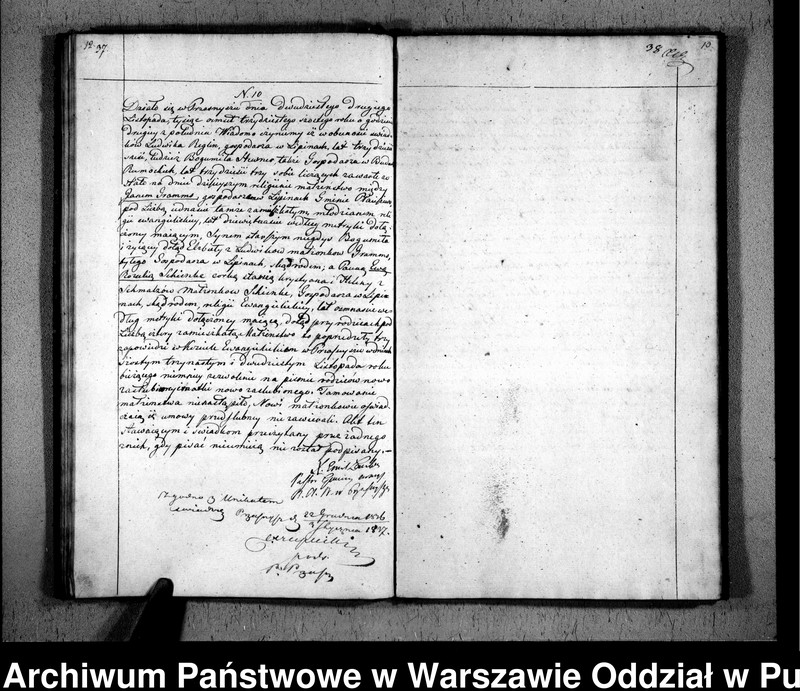 12. 37.
38
10
N. 10
Działo się w Przasnyszu dnia dwudziestego drugiego
Listopada, tysiąc ośmset trzydziestego szóstego roku o godzinie
drugiey z południa. Wiadomo czyniemy iż w obecności świad-
ków Ludwika Reglin, gospodarza w Lipinach, lat trzydzieści
sześć, tudzież Bogumiła także Gospodarza w
Rumockich, lat trzydzieści trzy sobie liczących zawarte zo-
stało na dniu dzisieyszym religijne małżeństwo między
Janem Gramms, gospodarzem w Lipinach Gminie
pod Liczbą tamże zamieszkałym, młodzianem reli-
gii ewangelickiey, lat według metryki dołą-
czoney maiącym, Synem starszym niegdyś Bogumiła
i żyiącey dotąd Elżbiety z Ludwików małżonków Gramms,
byłego Gospodarza w Lipinach, tamże zrodzonym; a Panną Ewą
Rozalią Schienke córką starszą Krystyana i Heleny z
Schmalzów Małżonków Schienke, Gospodarza w Lipi-
nach, religii Ewangelickiey, lat ośmnaście we-
dług metryki dołączoney maiącą, dotąd przy rodzicach pod
Liczbą cztery zamieszkałą. Małżeństwo to poprzedziły trzy
zapowiedzi w Kościele Ewangelickiem w Przasnyszu w dniach
szóstym trzynastym i dwudziestym Listopada roku
bieżącego niemniey zezwolenie na piśmie rodziców nowo
zaślubioney i matki nowo zaślubionego. Tamowanie
małżeństwa nie zaszło, Nowi małżonkowie oświad-
czaią iż umowy przedślubney nie zawierali. Akt ten
stawaiącym i świadkom przeczytany przez żadnego
z nich, gdy pisać nieumieią nie został podpisany.
Pastor Gminy ewang.
Zgodno z Unikatem
świadczę
Przasnysz d. 22 Grudnia 1836
3 Stycznia 1837.
Archiwum Państwowe w Warszawie Oddział w Pu